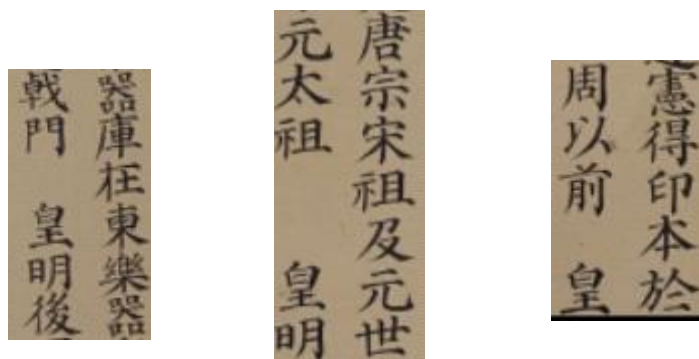 器庫在東樂器
戟門 皇明後
唐宗宋祖及元世
元太祖 皇明
憲得印本於
周以前 皇